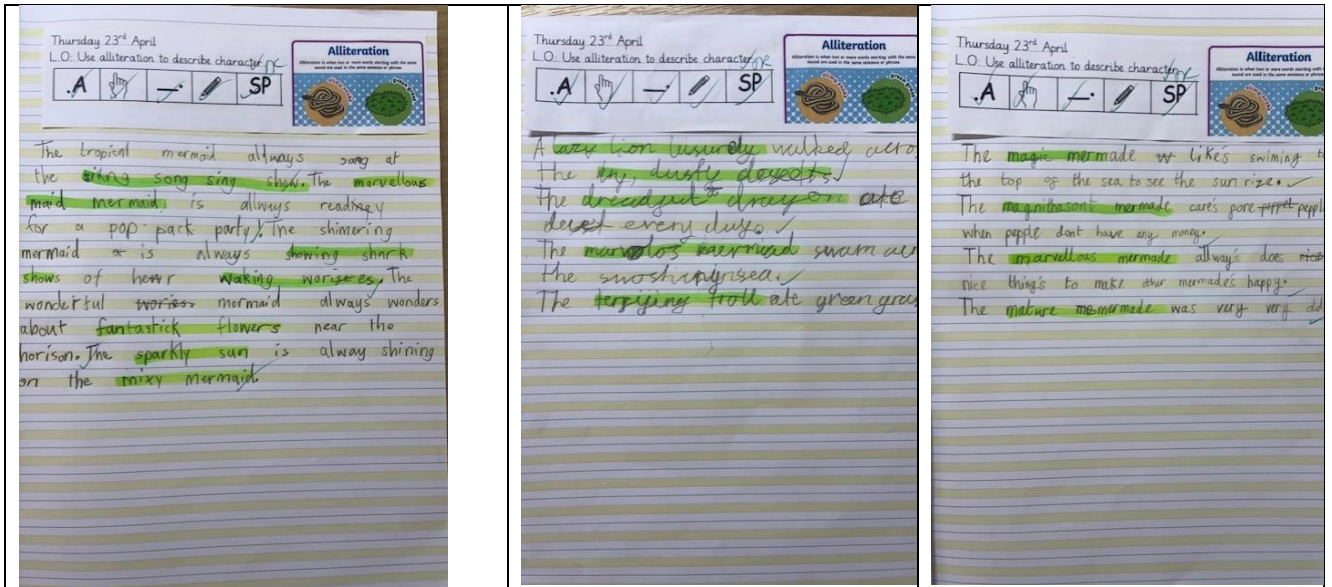 Thursday 23rd April
L.O: Use alliteration to describe character
.A
SP
Alliteration
Alliteration is when two or more words starting with the same
sound are used in the same sentence or phrase.
The tropical mermaid allways sang at
the song sing show. The marvellous
maid mermaid is allways
for a pop pack party. The shimering
mermaid is always showing shark
shows of her waking The
wonderful wories mermaid always wonders
about fantastick flowers near the
horison. The sparkly sun is alway shining
on the mixy mermaid.
Thursday 23rd April
L.O: Use alliteration to describe character
.A
SP
Alliteration
Alliteration is when two or more words starting with the same
sound are used in the same sentence or phrase.
A lazy lion walked acro
the dry, dusty
the dragon ate
every day.
The mermaid swam
the sea.
The troll ate green gras
Thursday 23rd April
L.O: Use alliteration to describe character
.A
SP
Alliteration
Alliteration is when two or more words starting with
sound are used in the same sentence or
The magic mermade like's swiming
the top of the sea to see the sun rize.
The magnithasont mermade care's pore
when pepple dont have any money.
The marvellous mermade allway's does
nice thing's to make other mermade's happy.
The mature mermade was very very